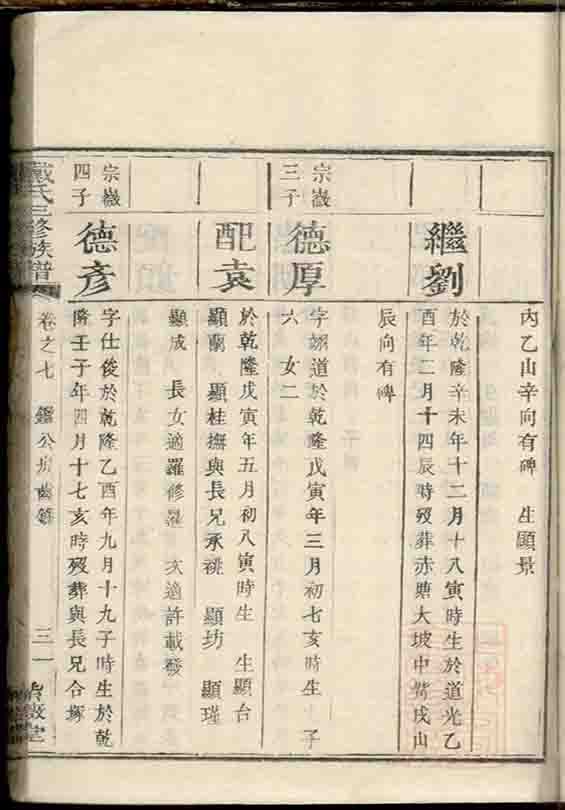 內乙山辛向有碑　生顯景
繼劉
於乾隆辛未年十二月十八寅時生於道光乙
酉年二月十四辰時歿葬赤塘大坡中嘴戌山
辰向有碑
宗嶽
三子
德厚
字翊道於乾隆戊寅年三月初七亥時生　子
六　女二
配袁
於乾隆戊寅年五月初八寅時生　生顯台
顯蘭　顯桂撫與長兄承祧　顯坊　顯瑾
顯成　長女適羅修　次適許載發
宗嶽
四子
德彥
字仕俊於乾隆乙酉年九月十九子時生於乾
隆壬子年四月十七亥時歿葬與長兄合塚
戴氏三修族譜
卷之七　鑑公房齒錄
三一